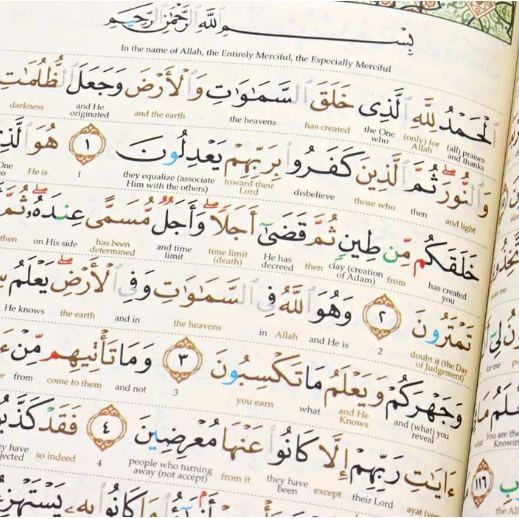 بِسْمِ ٱللَّهِ ٱلرَّحْمَٰنِ ٱلرَّحِيمِ
In the name of Allah, the Entirely Merciful, the Especially Merciful
ٱلْحَمْدُ لِلَّهِ ٱلَّذِى خَلَقَ ٱلسَّمَٰوَٰتِ وَٱلْأَرْضَ وَجَعَلَ ٱلظُّلُمَٰتِ
(all) praises and thanks (only) for Allah the One who has created the heavens and the earth and He originated darkness
وَٱلنُّورَ ۖ ثُمَّ ٱلَّذِينَ كَفَرُوا۟ بِرَبِّهِمْ يَعْدِلُونَ ١ هُوَ
and light then those who disbelieve toward their Lord they equalize (associate Him with the others) 1 He is
خَلَقَكُم مِّن طِينٍ ثُمَّ قَضَىٰٓ أَجَلًا ۖ وَأَجَلٌ مُّسَمًّى عِندَهُۥ ۖ ثُمَّ
has created you from clay (creation of Adam) then He has decreed time limit (death) and time limit has been determined on His side then
تَمْتَرُونَ ٢ وَهُوَ ٱللَّهُ فِى ٱلسَّمَٰوَٰتِ وَفِى ٱلْأَرْضِ ۖ يَعْلَمُ
doubt it (the Day of Judgement) 2 and He is Allah in the heavens and in the earth He knows
وَجَهْرَكُمْ وَيَعْلَمُ مَا تَكْسِبُونَ ٣ وَمَا تَأْتِيهِم مِّنْ
and (what) you reveal and He Knows what you earn 3 and not come to them from
ءَايَٰتِ رَبِّهِمْ إِلَّا كَانُوا۟ عَنْهَا مُعْرِضِينَ ٤ فَقَدْ
their Lord except they have been from it people who turning away (not accept) 4 so indeed
١١٦